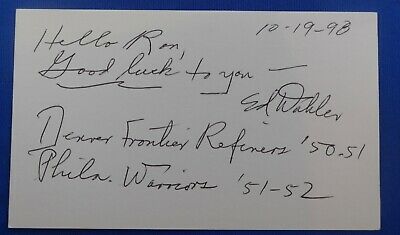 10-19-98
Hello Ron,
Good luck to you —
Ed Dahler
Denver Frontier Refiners '50-51
Phila. Warriors '51-52